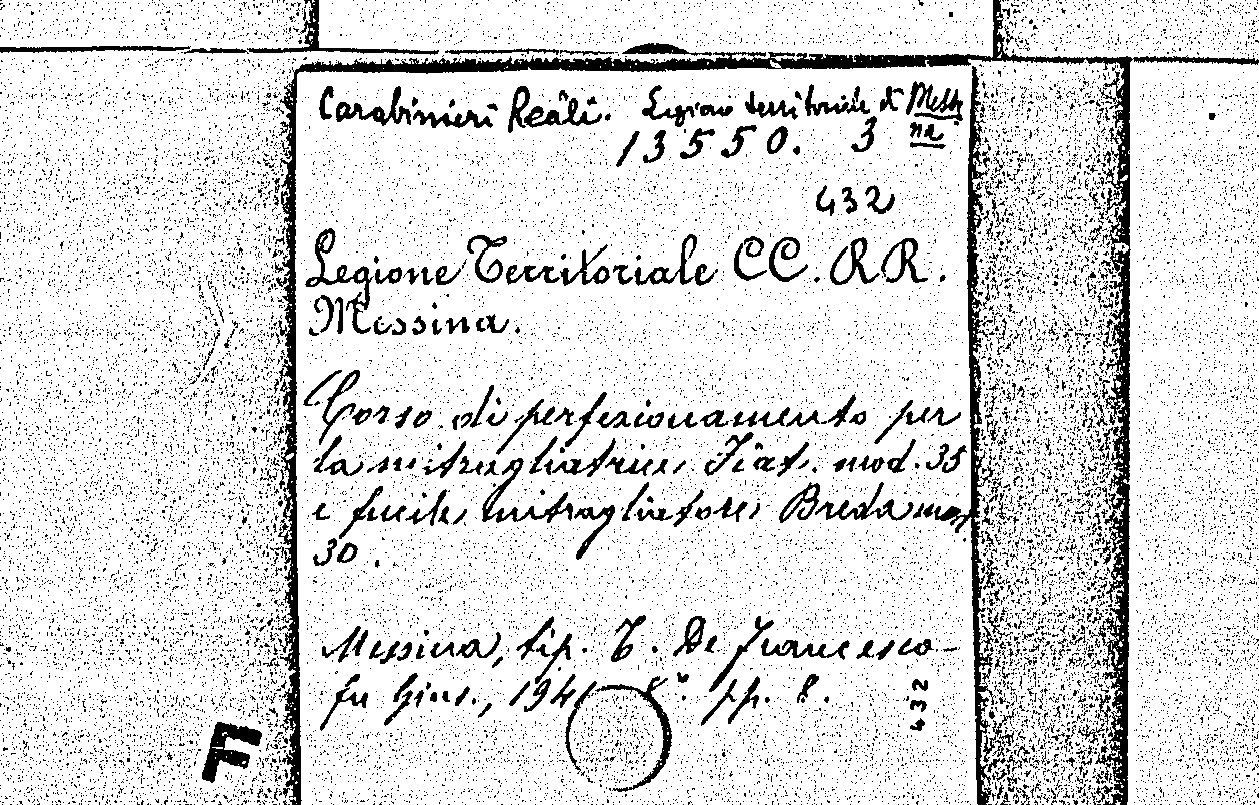 Carabinieri Reali. Legione territoriale di Messi
na
13550. 3
432
Legione Territoriale CC. RR.
Messina.
Corso di perfezionamento per
la mitragliatrice Fiat. mod. 35
e fucile mitragliatore Breda mod.
30.
Messina, tip. T. De Francesco
fu Gius., 1941 8°. pp. 8.
432
F